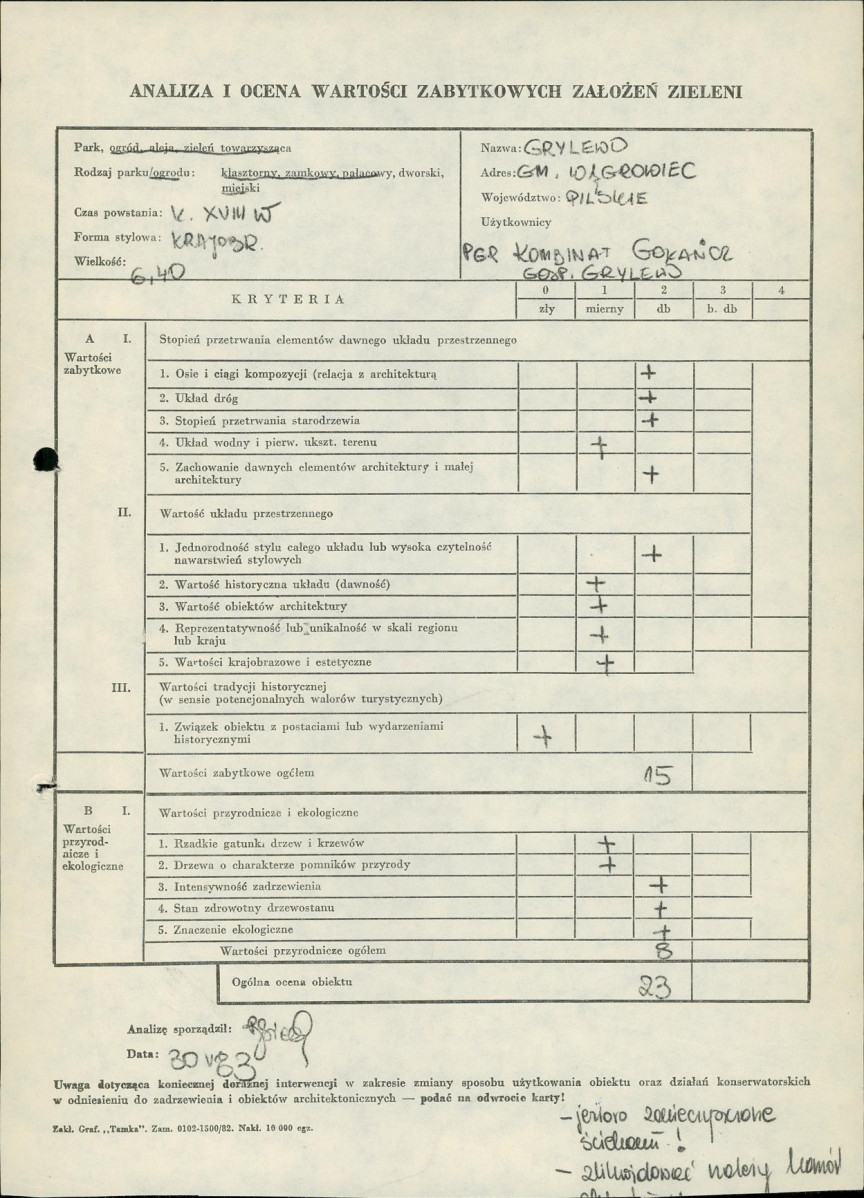 ANALIZA I OCENA WARTOŚCI ZABYTKOWYCH ZAŁOŻEŃ ZIELENI
Park, ogród, aleja, zieleń towarzysząca
Rodzaj parku/ogrodu: klasztorny, zamkowy, pałacowy, dworski,
miejski
Czas powstania: K. XVIII W
Forma stylowa: KRAJOBR.
Wielkość: 6,40
Nazwa: GRYLEWO
Adres: GM. WĄGROWIEC
Województwo: PILSKIE
Użytkownicy
PGR KOMBINAT GOŁAŃCZ
GOSP. GRYLEWO
KRYTERIA
0 1 2 3 4
zły mierny db b. db
A I. Stopień przetrwania elementów dawnego układu przestrzennego
Wartości
zabytkowe
1. Osie i ciągi kompozycji (relacja z architekturą +
2. Układ dróg +
3. Stopień przetrwania starodrzewia +
4. Układ wodny i pierw. ukszt. terenu +
5. Zachowanie dawnych elementów architektury i małej
architektury +
II. Wartość układu przestrzennego
1. Jednorodność stylu całego układu lub wysoka czytelność
nawarstwień stylowych +
2. Wartość historyczna układu (dawność) +
3. Wartość obiektów architektury +
4. Reprezentatywność lub unikalność w skali regionu
lub kraju +
5. Wartości krajobrazowe i estetyczne +
III. Wartości tradycji historycznej
(w sensie potencjonalnych walorów turystycznych)
1. Związek obiektu z postaciami lub wydarzeniami
historycznymi +
Wartości zabytkowe ogółem 15
B I. Wartości przyrodnicze i ekologiczne
Wartości
przyrod-
nicze i
ekologiczne
1. Rzadkie gatunki drzew i krzewów +
2. Drzewa o charakterze pomników przyrody +
3. Intensywność zadrzewienia +
4. Stan zdrowotny drzewostanu +
5. Znaczenie ekologiczne +
Wartości przyrodnicze ogółem 8
Ogólna ocena obiektu 23
Analizę sporządził:
Data: 30 V 83
Uwaga dotycząca koniecznej doraźnej interwencji w zakresie zmiany sposobu użytkowania obiektu oraz działań konserwatorskich
w odniesieniu do zadrzewienia i obiektów architektonicznych — podać na odwrocie karty!
– jezioro zanieczyszczone
ściekami!
Zakł. Graf. „Tamka". Zam. 0102-1500/82. Nakł. 10 000 egz.
– zlikwidować należy